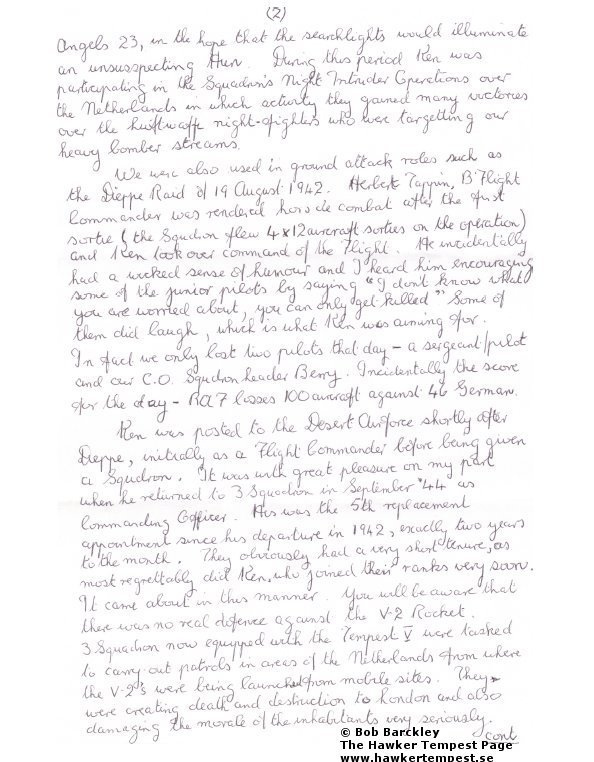 (2)
Angels 23, in the hope that the searchlights would illuminate
an unsuspecting Hun. During this period Ken was
participating in the Squadron's Night Intruder Operations over
the Netherlands in which activity they gained many victories
over the Luftwaffe night-fighters who were targetting our
heavy bomber streams.
We were also used in ground attack roles such as
the Dieppe Raid of 19 August 1942. Herbert Tappin, B Flight
Commander was rendered hors de combat after the first
sortie (the Squadron flew 4x12 aircraft sorties on the operation)
and Ken took over command of the Flight. He incidentally
had a wicked sense of humour and I heard him encouraging
some of the junior pilots by saying "I don't know what
you are worried about, you can only get killed" Some of
them did laugh, which is what Ken was aiming for.
In fact we only lost two pilots that day - a sergeant/pilot
and our C.O. Squadron Leader Berry. Incidentally the score
for the day - RAF losses 100 aircraft against 46 German.
Ken was posted to the Desert Airforce shortly after
Dieppe, initially as a Flight Commander before being given
a Squadron. It was with great pleasure on my part
when he returned to 3 Squadron in September '44 as
Commanding Officer. His was the 5th replacement
appointment since his departure in 1942, exactly two years
to the month. They obviously had a very short tenure, as
most regrettably did Ken, who joined their ranks very soon.
It came about in this manner. You will be aware that
there was no real defence against the V-2 Rocket.
3 Squadron now equipped with the Tempest V were tasked
to carry out patrols in areas of the Netherlands from where
the V-2's were being launched from mobile sites. They
were creating death and destruction to London and also
damaging the morale of the inhabitants very seriously.
cont
© Bob Barckley
The Hawker Tempest Page
www.hawkertempest.se